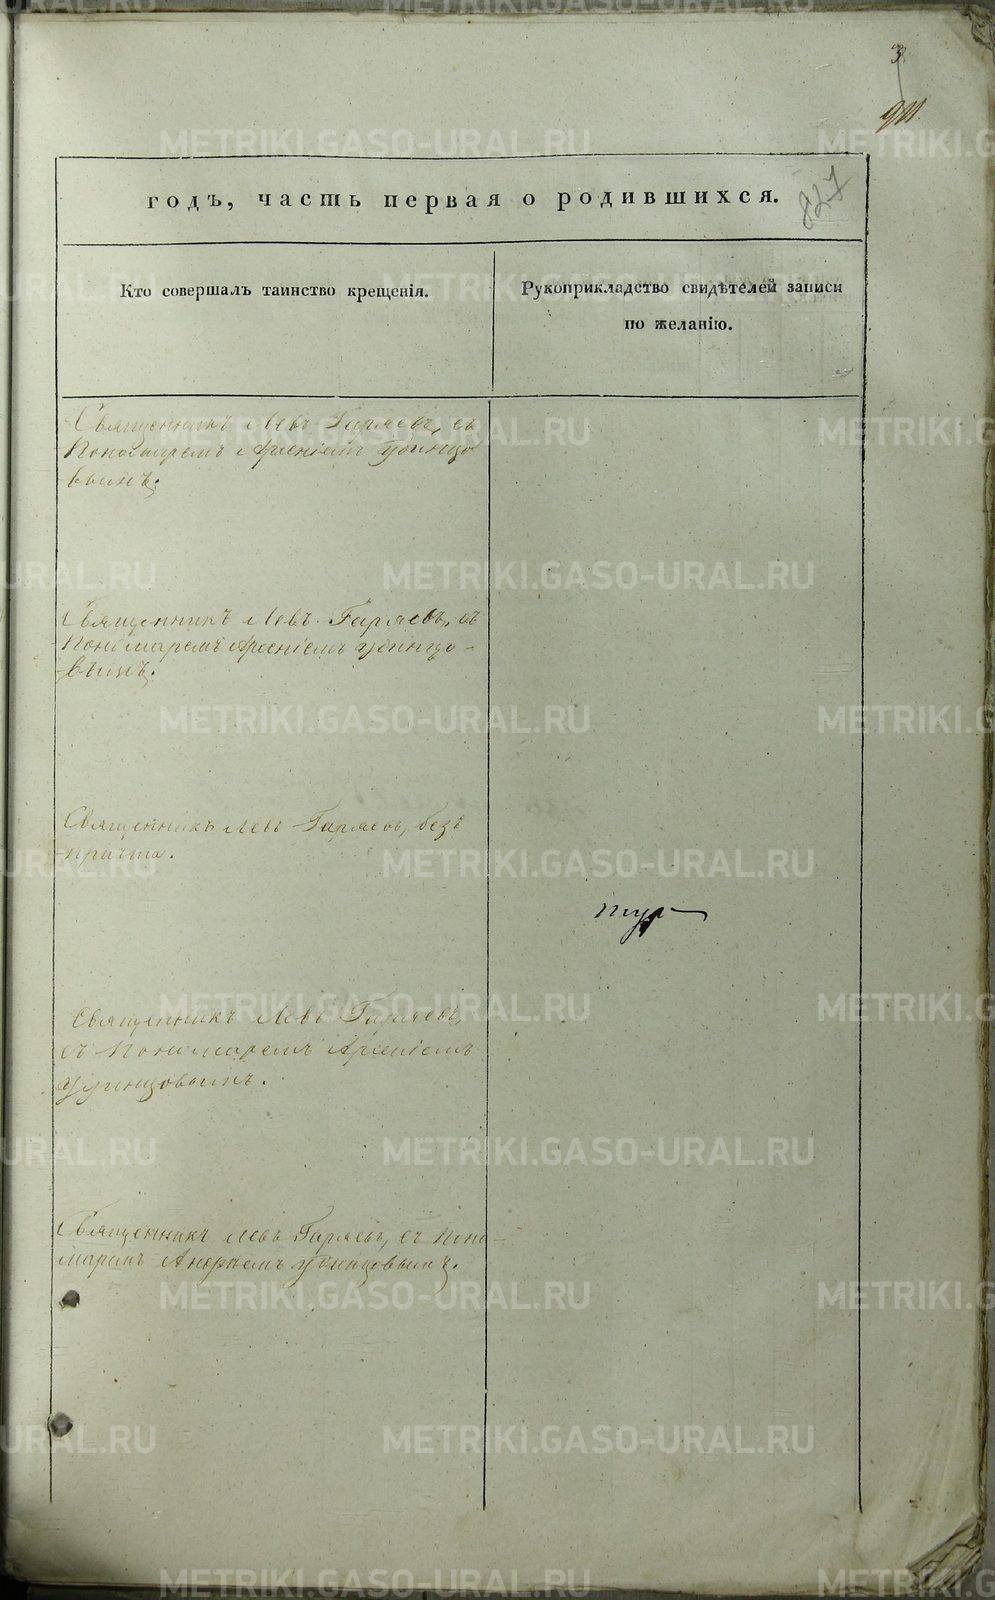 3
911.
827
годъ, часть первая о родившихся.
Кто совершалъ таинство крещенія.
Рукоприкладство свидѣтелей записи
по желанію.
Священникъ Левъ Гаряевъ, съ
Пономаремъ Арсеніемъ Удинцо
вымъ.
Священникъ Левъ Гаряевъ, съ
Пономаремъ Арсеніемъ Удинцо-
вымъ.
Священникъ Левъ Гаряевъ, безъ
причта.
Священникъ Левъ Гаряевъ,
съ Пономаремъ Арсеніемъ
Удинцовымъ.
Священникъ Левъ Гаряевъ, съ Поно-
маремъ Удинцовымъ.
METRIKI.GASO-URAL.RU